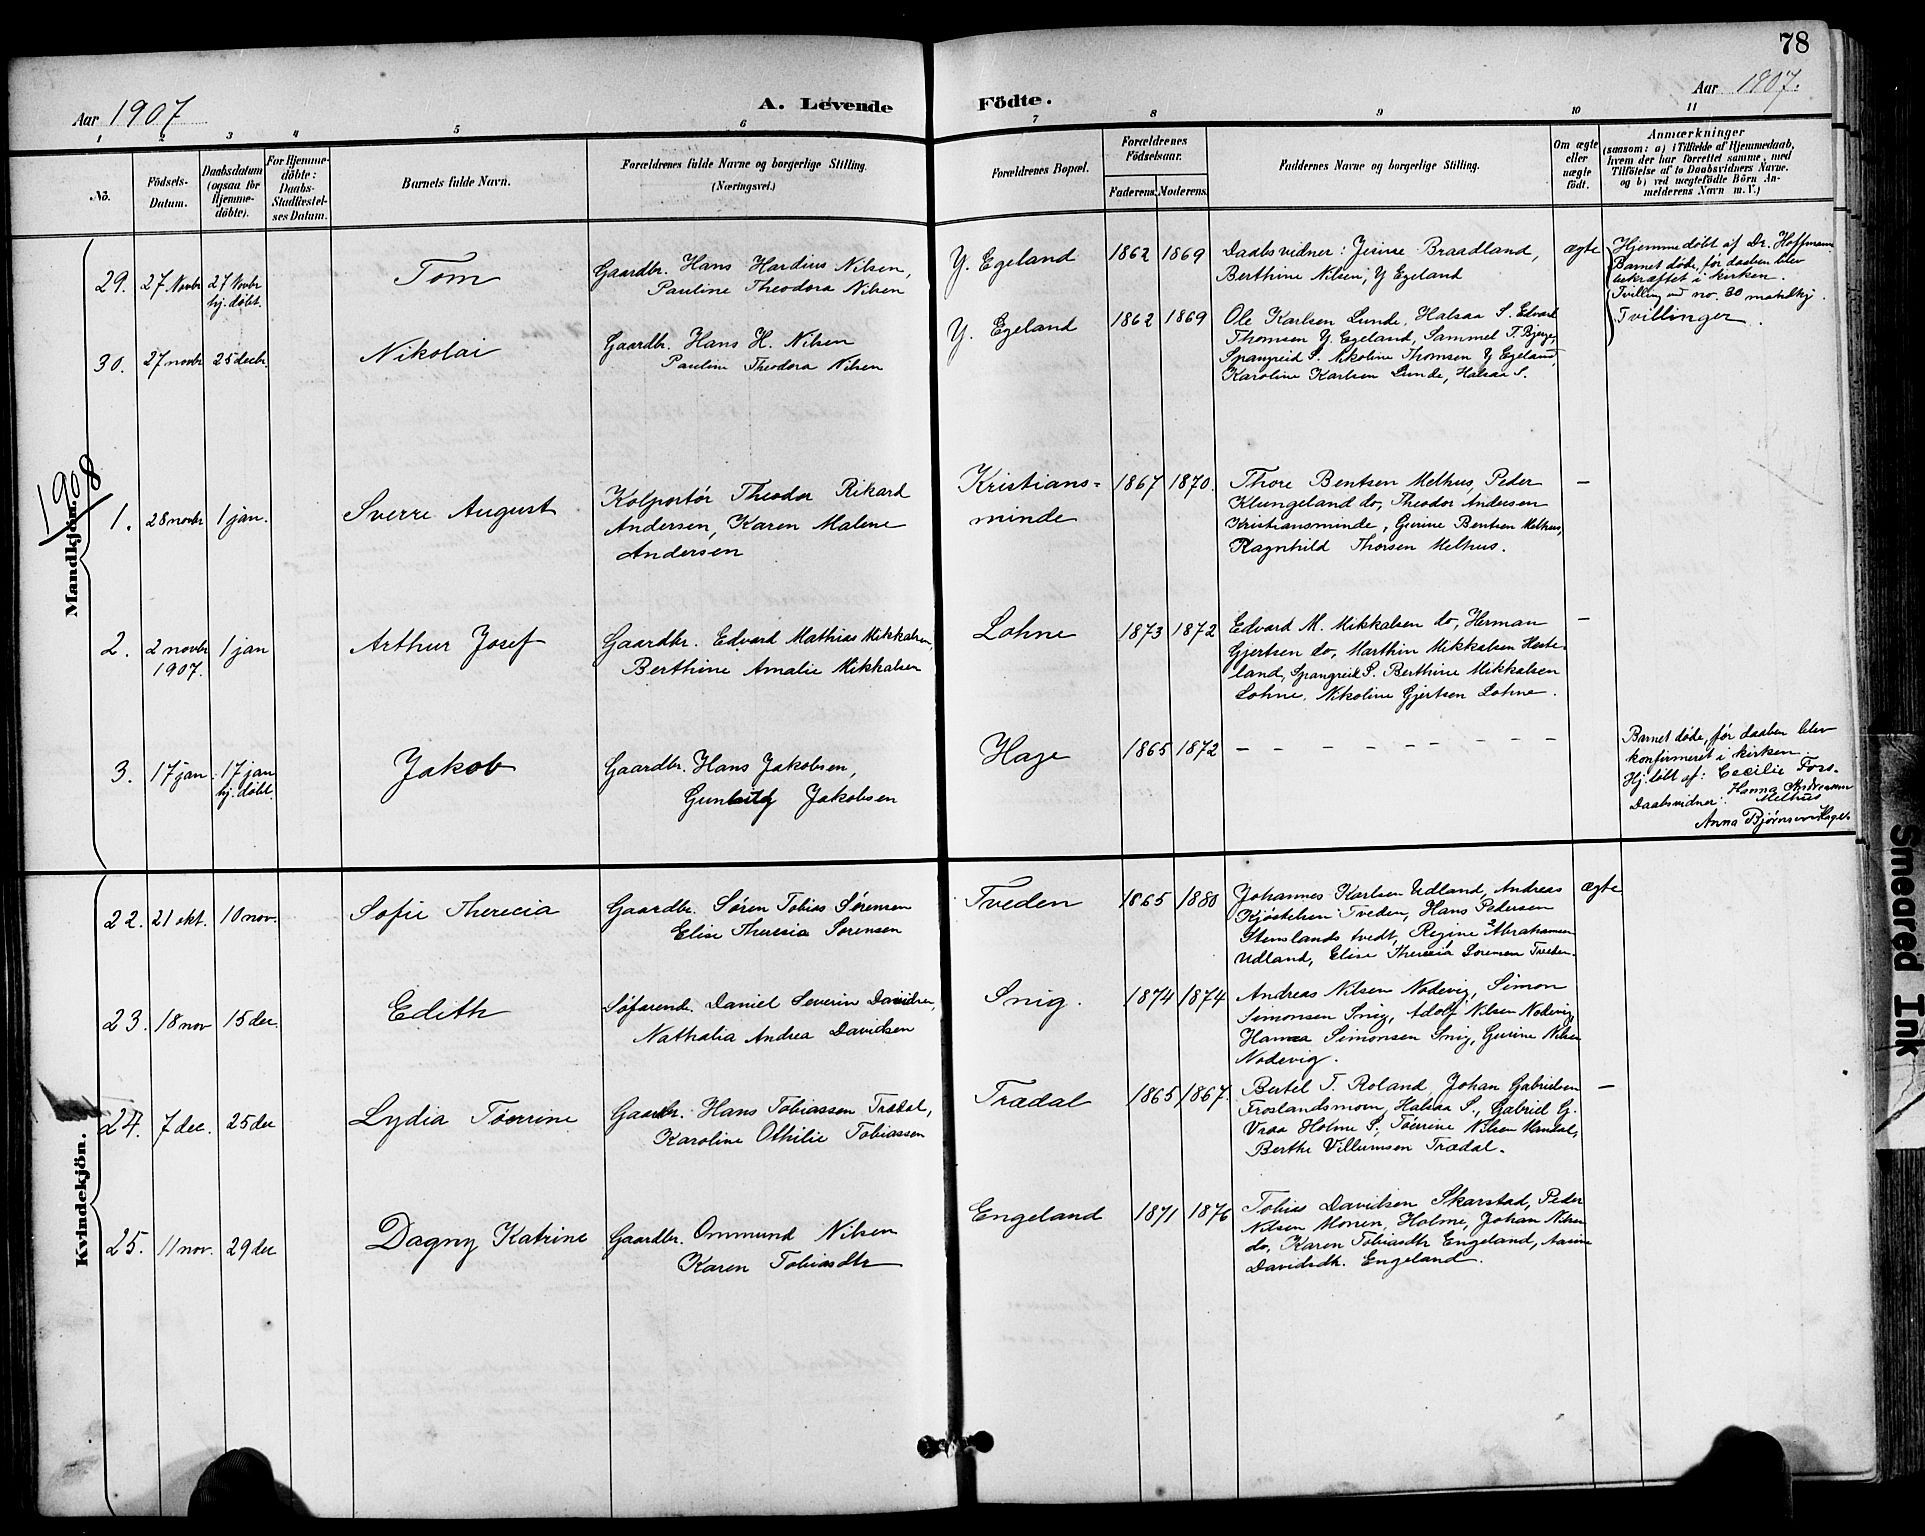 78
Aar 1907
A. Levende Födte.
Aar 1807.
1 2 3 4 5 6 7 8 9 10 11
No.
Födsels-
Datum.
Daabsdatum
(ogsaa for
Hjemme-
döbte).
For Hjemme-
döbte:
Daabs-
Stadfæstel-
ses Datum.
Barnets fulde Navn.
Forældrenes fulde Navne og borgerlige Stilling.
(Næringsvei.)
Forældrenes Bopæl.
Forældrenes
Födselsaar.
Faderens. Moderens.
Faddernes Navne og borgerlige Stilling.
Om ægte
eller
uægte
født.
Anmærkninger
(saasom: a) i Tilfælde af Hjemmedaab,
hvem der har forrettet samme, med
Tilföielse af to Daabsvidners Navne.
og b) ved uægtefödte Börn An-
melderens Navn m. V.)
Mandkjön.
29. 27 Novbr 27 Novbr
hj. døbt.
Tom
Gaardbr. Hans Hardius Nilsen,
Pauline Theodora Nilsen
Y. Egeland 1862 1869
Daabsvidner: Jesine Braadland,
Berthine Nilsen, Y Egeland
ægte
Hjemmedøbt af Dr. Hoffmann
Barnet døde, før daaben blev
bekræftet i kirken.
Tvilling med no. 30 mandkj.
30. 27 novbr 25 decbr.
Nikolai
Gaardbr. Hans H. Nilsen
Pauline Theodora Nilsen
Y. Egeland 1862 1869
Ole Karlsen Lunde, Halsaa S. Edvard
Thomsen Y Egeland, Sammel T.
Spangreid S. Nikoline Thomsen Y Egeland,
Karoline Karlsen Lunde, Halsaa S.
Tvillinger.
1908
1. 28 novbr 1 jan.
Sverre August
Kolportør Theodor Rikard
Andersen, Karen Malene
Andersen
Kristians-
minde
1867 1870.
Thore Bentsen Melhus, Peder
Klungeland do, Theodor Andersen
Kristiansminde, Gurine Bentsen Melhus,
Ragnhild Thorsen Melhus.
–
2. 2 novbr 1 jan
1907.
Arthur Josef
Gaardbr. Edvard Mathias Mikkalsen,
Berthine Amalie Mikkalsen
Lohne 1873 1872
Edvard M. Mikkalsen do, Herman
Gjertsen do, Marthin Mikkalsen Heste-
land, Spangreid S. Berthine Mikkalsen
Lohne, Nikoline Gjertsen Lohne.
–
3. 17 jan. 17 jan
hj. døbt.
Jakob
Gaardbr. Hans Jakobsen,
Jakobsen
Hage 1865 1872
– – – – – – – –
Barnet døde, før daaben blev
konfirmeret i kirken.
Hj. døbt af: Cecilie Fors-
Daabsvidner: Hanna Andreasen
Melhus
Anna Bjørnsen Hage
Kvindekjön.
22. 21 okt. 10 nov.
Sofie Therecia
Gaardbr. Søren Tobias Sørensen
Elise Theresia Sørensen
Tveden 1865 1880
Johannes Karlsen Udland, Andreas
Kjøstelsen Tveden, Hans Pedersen
Stenslands tvedt, Regine Abrahamsen
Udland, Elise Theresia Sørensen Tveden.
ægte
23. 18 nov 15 dec.
Edith
Søfarende Daniel Severin Davidsen,
Nathalia Andrea Davidsen
Snig. 1874 1874
Andreas Nilsen Nodevig, Simon
Simonsen Snig, Adolf Nilsen Nodevig,
Hanna Simonsen Snig, Gurine Nilsen
Nodevig.
24. 7 dec. 25 dec
Lydia Tøerrine
Gaardbr. Hans Tobiassen Trædal,
Karoline Othilie Tobiassen
Trædal 1865 1867.
Bertel T. Roland Johan Gabrielsen
Froslandsmoen, Halsaa S., Gabriel G.
Vraa Holme S., Tøerrine Nilsen Mandal,
Berthe Villumsen Trædal.
–
25. 11 nov. 29 dec
Dagny Katrine
Gaardbr. Ommund Nilsen
Karen Tobiasdtr
Engeland 1871 1876
Tobias Davidsen Skarstad, Peder
Nilsen Monen, Holme, Johan Nilsen
do, Karen Tobiasdtr Engeland, Aasine
Davidsdtr. Engeland.
Smeared Ink